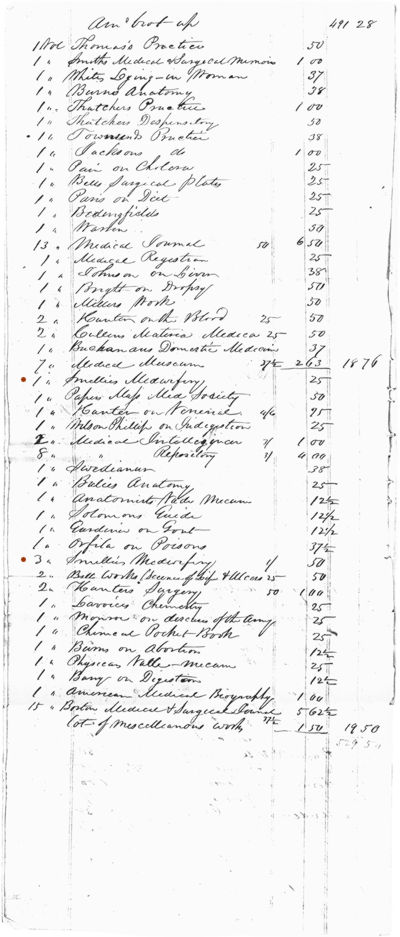 Amt brot up 491 28
1 Vol Thomas's Practice 50
1 " Smiths Medical & Surgical Memoirs 1 00
1 " Whites Lying-in Woman 37
1 " Burns Anatomy 38
1 " Thatchers Practice 1 00
1 " Thatchers Dispensitory 50
1 " Townsends Practice 38
1 " Jacksons do 1 00
1 " Pair on Cholera 25
1 " Bells Surgical plates 25
1 " Paris on Diet 25
1 " Bedingfields 25
1 " 50
13 " Medical Journal 50 6 50
1 " Medical Registrar 25
1 " Johnson on Liver 38
1 " Bright on Dropsy 50
1 " Millers Work 50
2 " Hunter on the Blood 25 50
2 " Cullens Materia Medica 25 50
1 " Buchanans Domestic Medicine 37
7 " Medical Museum 37½ 2 63 18 76
1 " Smellies Midwifery 25
1 " Papers Mass Med Society 50
1 " Hunter on Venereal 4/6 75
1 " Wilson Phillip on Indigestion 25
2 " Medical Intelligencer 3/ 1 00
8 " " Repository 3/ 4 00
1 " Swedianur 38
1 " Balies Anatomy 25
1 " Anatomists Vade Mecum 12½
1 " Solomons Guide 12½
1 " Gardiner on Gout 12½
1 " Orfila on Poisons 37½
3 " Smellies Medwifery 1/ 50
2 " Bell Works & Ulcers 25 50
2 " Hunters Surgery 50 1 00
1 " Lavoices Chemistry 25
1 " Monroe on diseases of the Army 25
1 " Chimical Pocket Book 25
1 " Burns on Abortion 12½
1 " Physicians Valle-mecum 25
1 " Barry on Digestion 12½
1 " American Medical Biography 1 00
15 " Boston Medical & Surgical Journal 37½ 5 62½
lot of Miscellianous works 1 50 19 50